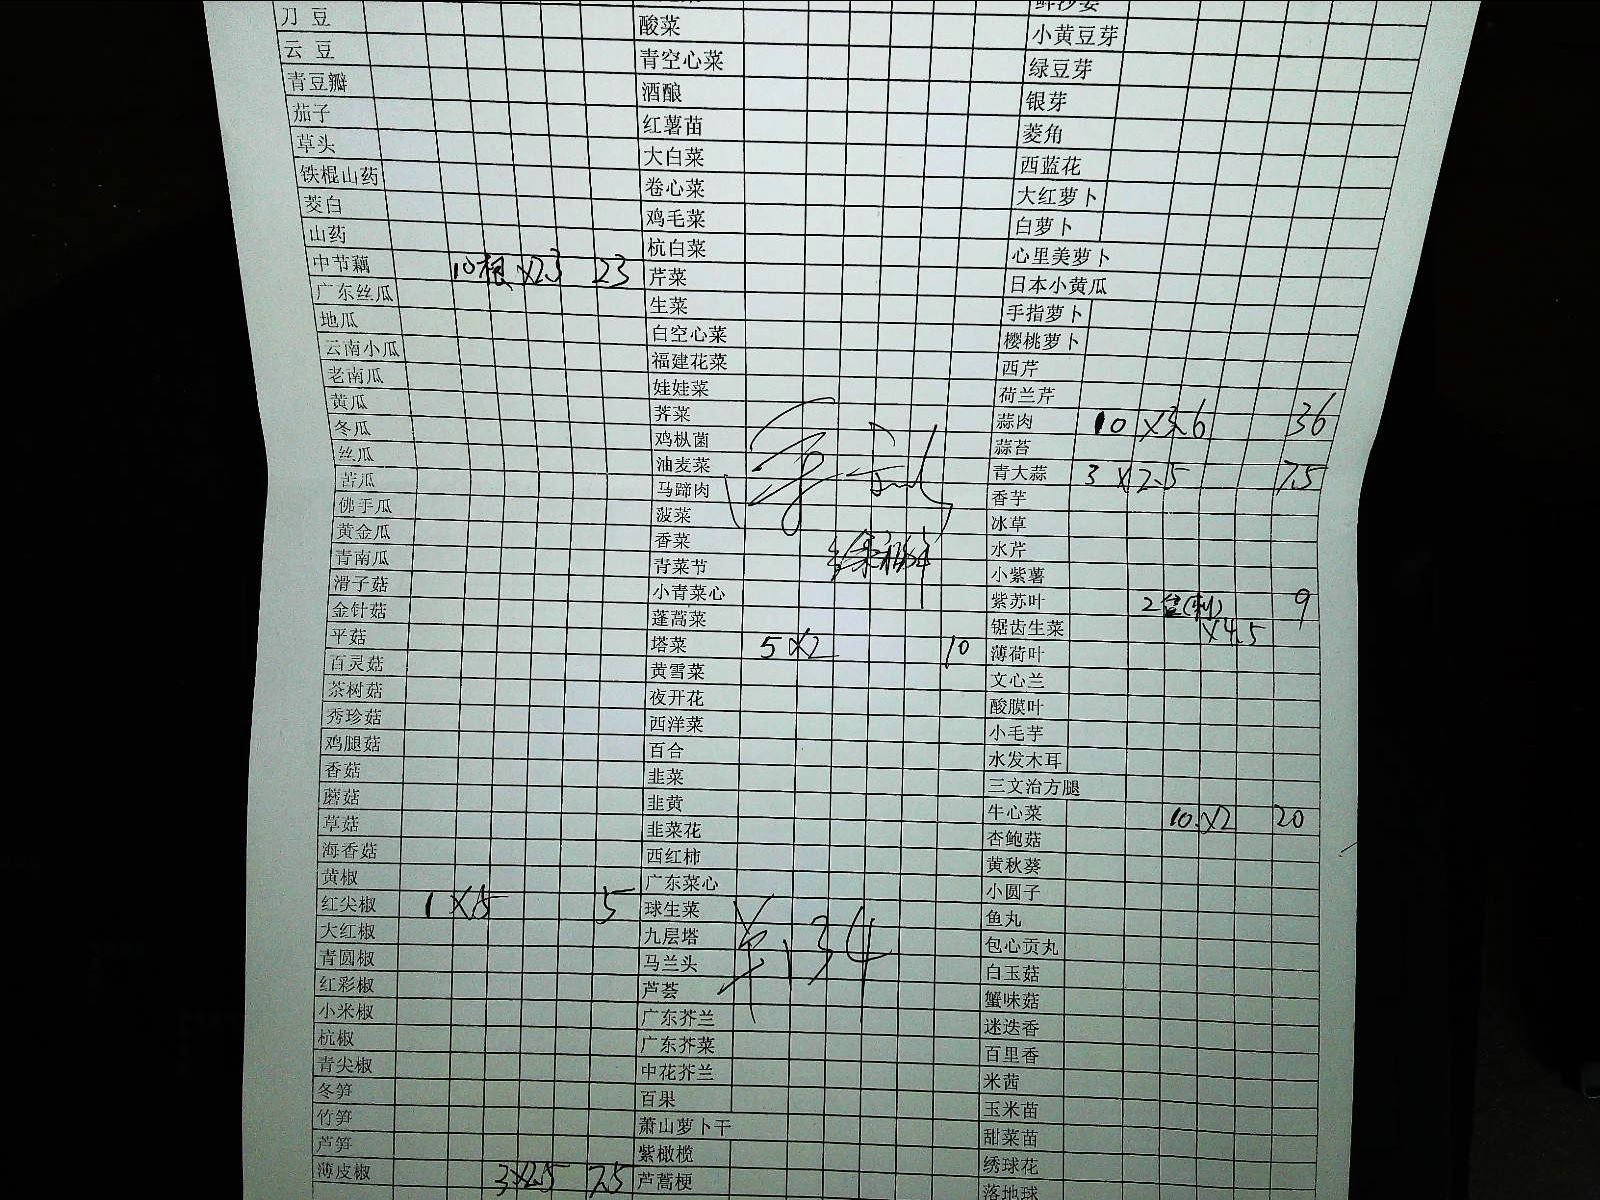 刀豆
云豆
青豆瓣
茄子
草头
铁棍山药
茭白
山药
中节藕 10根 ×2.3 23
广东丝瓜
地瓜
云南小瓜
老南瓜
黄瓜
冬瓜
丝瓜
苦瓜
佛手瓜
黄金瓜
青南瓜
滑子菇
金针菇
平菇
百灵菇
茶树菇
秀珍菇
鸡腿菇
香菇
蘑菇
草菇
海香菇
黄椒
红尖椒 1 × 5
大红椒
青圆椒
红彩椒
小米椒
杭椒
青尖椒
冬笋
竹笋
芦笋
薄皮椒 3×2.5 7.5
酸菜
青空心菜
酒酿
红薯苗
大白菜
卷心菜
鸡毛菜
杭白菜
芹菜
生菜
白空心菜
福建花菜
娃娃菜
荠菜
鸡枞菌
油麦菜
马蹄肉
菠菜
香菜
青菜节
小青菜心
蓬蒿菜
塔菜 5×2 10
黄雪菜
夜开花
西洋菜
百合
韭菜
韭黄
韭菜花
西红柿
广东菜心
球生菜
九层塔
马兰头
芦荟
广东芥兰
广东芥菜
中花芥兰
百果
萧山萝卜干
紫橄榄
芦蒿梗
小黄豆芽
绿豆芽
银芽
菱角
西蓝花
大红萝卜
白萝卜
心里美萝卜
日本小黄瓜
手指萝卜
樱桃萝卜
西芹
荷兰芹
蒜肉 10 ×3.6 36
蒜苔
青大蒜 3 ×2.5 7.5
香芋
冰草
水芹
小紫薯
紫苏叶 2盒 ×4.5 9
锯齿生菜
薄荷叶
文心兰
酸膜叶
小毛芋
水发木耳
三文治方腿
牛心菜 10×2 20
杏鲍菇
黄秋葵
小圆子
鱼丸
包心贡丸
白玉菇
蟹味菇
迷迭香
百里香
米茜
玉米苗
甜菜苗
绣球花
落地球